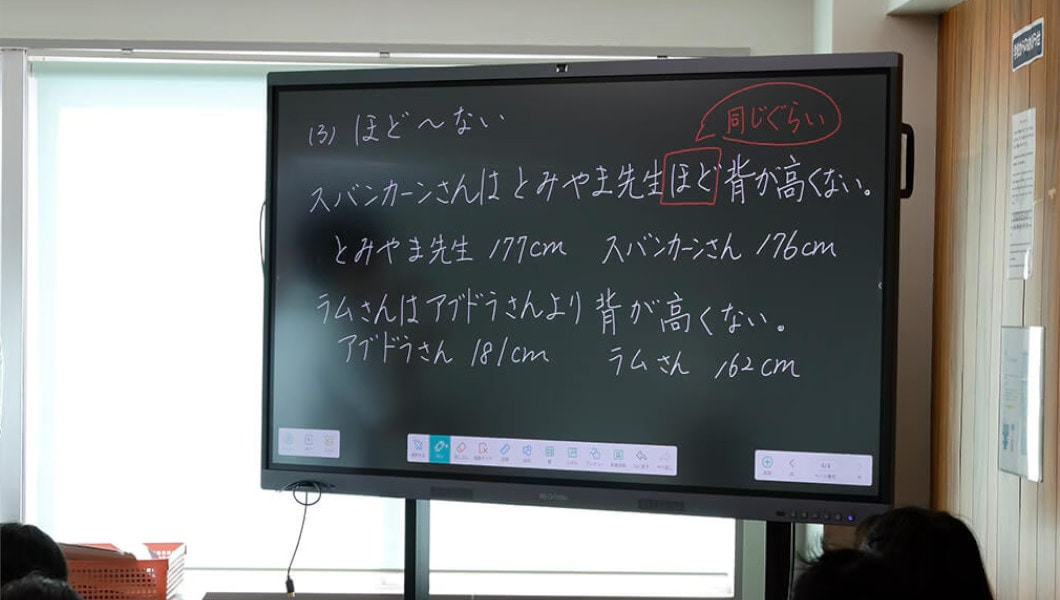 (3) ほど～ない
同じぐらい
スバンカーンさんはとみやま先生ほど背が高くない。
とみやま先生 177cm スバンカーンさん 176cm
ラムさんはアブドラさんより背が高くない。
アブドラさん 181cm ラムさん 162cm